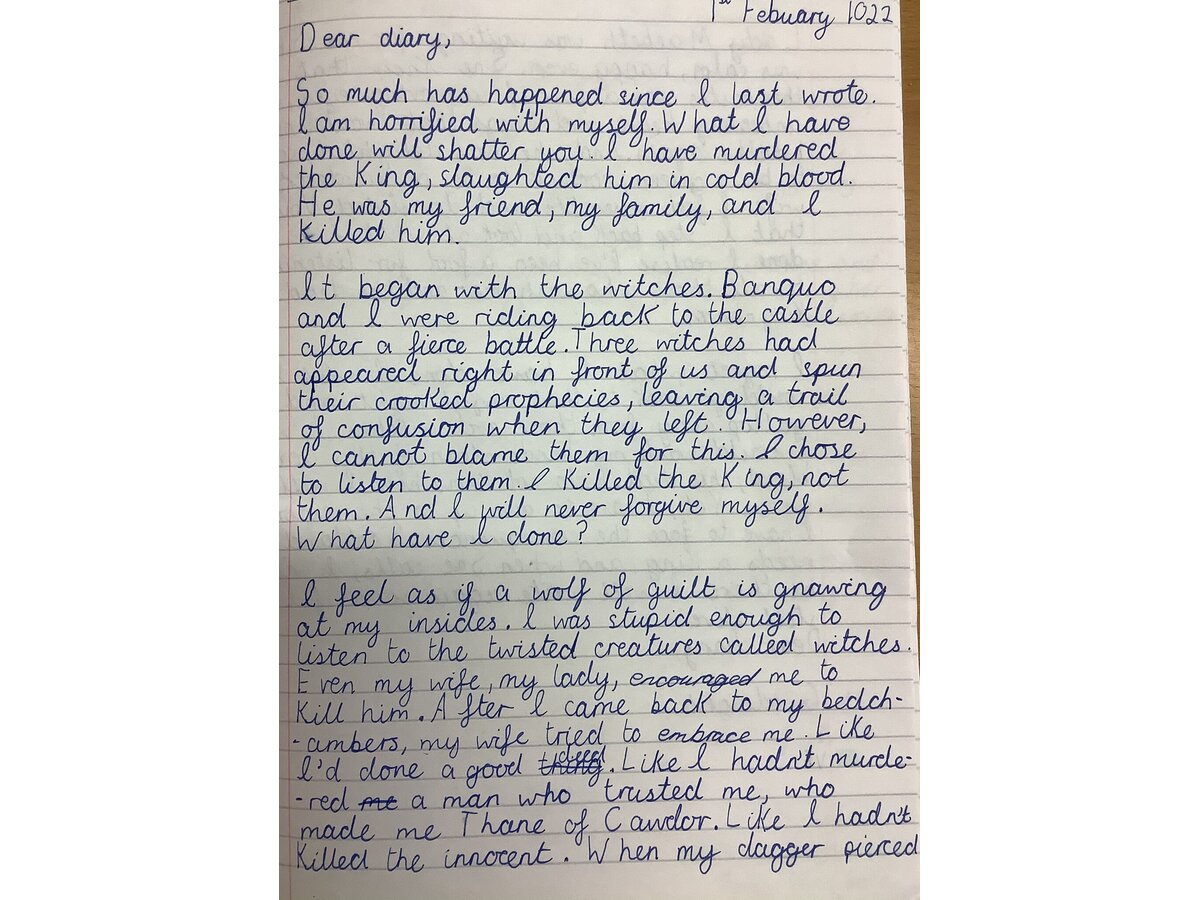 1st Febuary 1022
Dear diary,
So much has happened since I last wrote.
I am horrified with myself. What I have
done will shatter you. I have murdered
the King, slaughted him in cold blood.
He was my friend, my family, and I
killed him.
It began with the witches. Banquo
and I were riding back to the castle
after a fierce battle. Three witches had
appeared right in front of us and spun
their crooked prophecies, leaving a trail
of confusion when they left. However,
I cannot blame them for this. I chose
to listen to them. I killed the King, not
them. And I will never forgive myself.
What have I done?
I feel as if a wolf of guilt is gnawing
at my insides. I was stupid enough to
listen to the twisted creatures called witches.
Even my wife, my lady, encouraged me to
kill him. After I came back to my bedch-
-ambers, my wife tried to embrace me. Like
I'd done a good thing deed. Like I hadn't murde-
-red me a man who trusted me, who
made me Thane of Cawdor. Like I hadn't
killed the innocent. When my dagger pierced